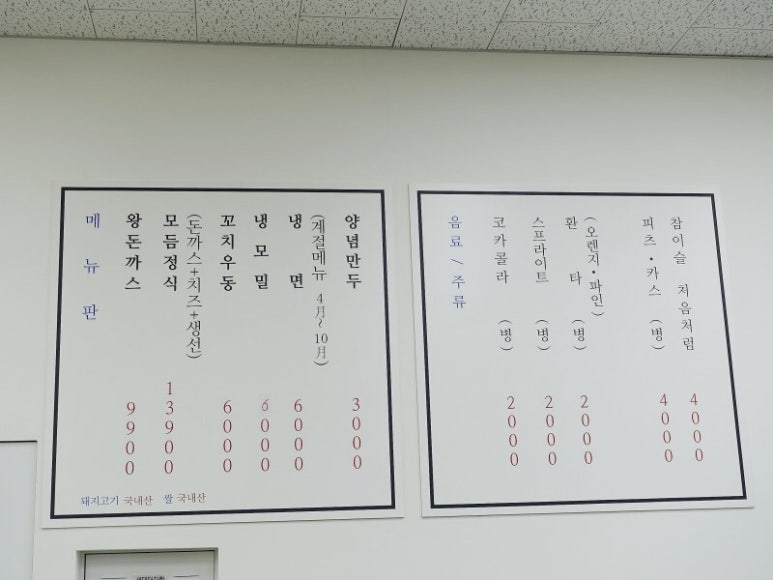 메뉴판
왕돈까스 9900
모듬정식 13900
(돈까스+치즈+생선)
꼬치우동 6000
냉모밀 6000
냉면 6000
(계절메뉴 4月~10月)
양념만두 3000
돼지고기 국내산 쌀 국내산
음료 / 주류
코카콜라 (병) 2000
스프라이트 (병) 2000
환타 (병) 2000
(오렌지·파인)
피츠·카스 (병) 4000
참이슬 처음처럼 4000